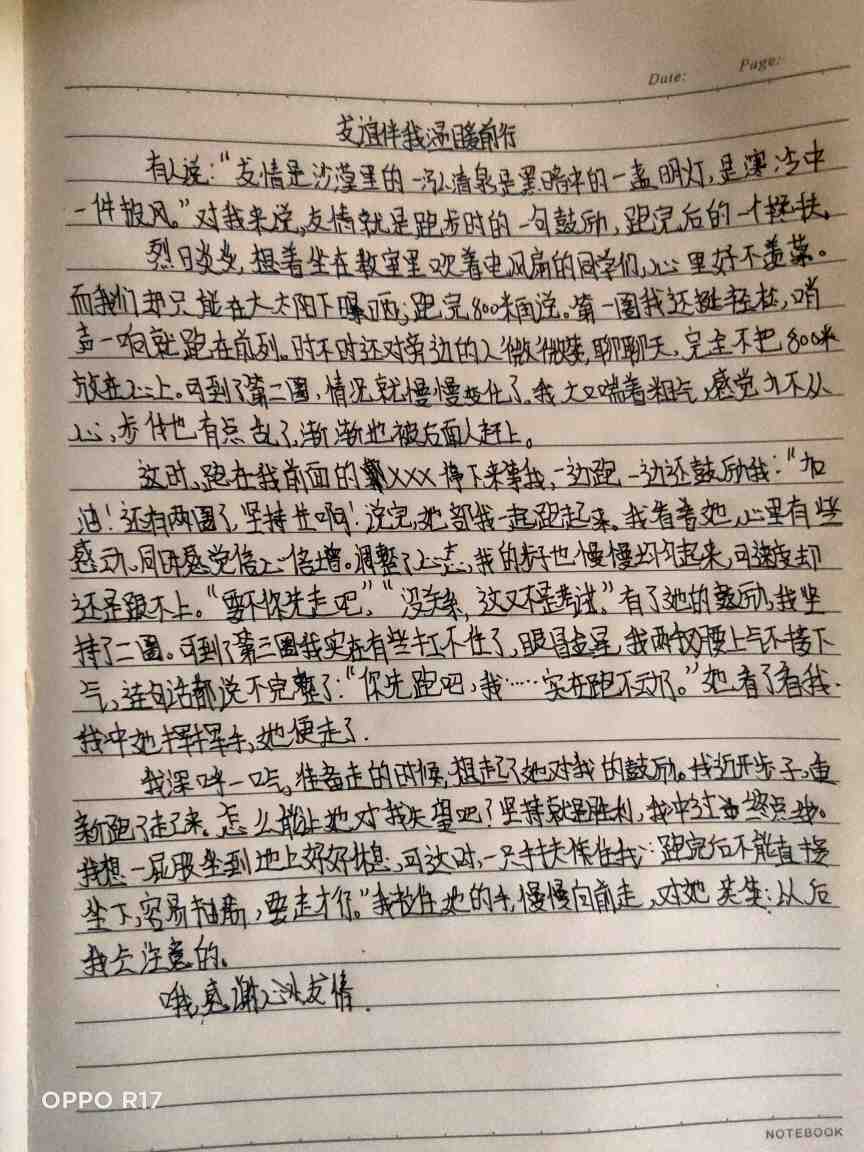 Date: Page:
友谊伴我温暖前行
有人说:“友情是沙漠里的一泓清泉是黑暗中的一盏明灯,是寒冷中
一件披风。”对我来说,友情就是跑步时的一句鼓励,跑完后的一个搀扶。
烈日炎炎,想着坐在教室里吹着电风扇的同学们,心里好不羡慕。
而我们却只能在大太阳下曝晒,跑完800米再说。第一圈我还挺轻松,哨
声一响就跑在前列。时不时还对旁边的人微微笑,聊聊天,完全不把800米
放在心上。可到了第二圈,情况就慢慢变化了。我大口喘着粗气,感觉力不从
心,步伐也有点乱了,渐渐地被后面人赶上。
这时,跑在我前面的郭XXX停下来等我,一边跑一边还鼓励我:“加
油!还有两圈了,坚持住啊!说完,她陪我一起跑起来。我看着她,心里有些
感动、同时感觉信心倍增。调整了心态,我的步子也慢慢均匀起来,可速度却
还是跟不上。“要不你先走吧”、“没关系,这又不是考试。”有了她的鼓励,我坚
持了二圈。可到了第三圈我实在有些扛不住了,眼冒金星,我两叉腰上气不接下
气,连句话都说不完整了:“你先跑吧,我……实在跑不动了。”她看了看我.
我冲她挥挥手,她便走了.
我深呼一口气。准备走的时候,想起了她对我的鼓励。我迈开步子,重
新跑了起来。怎么能让她对我失望呢?坚持就是胜利,我冲过了终点线。
我想一屁股坐到地上好好休息,可这时,一只手扶住我:跑完后不能直接
坐下,容易抽筋,要走才行。”我拉住她的手,慢慢向前走,对她笑笑:以后
我会注意的。
哦,感谢友情.
OPPO R17
NOTEBOOK